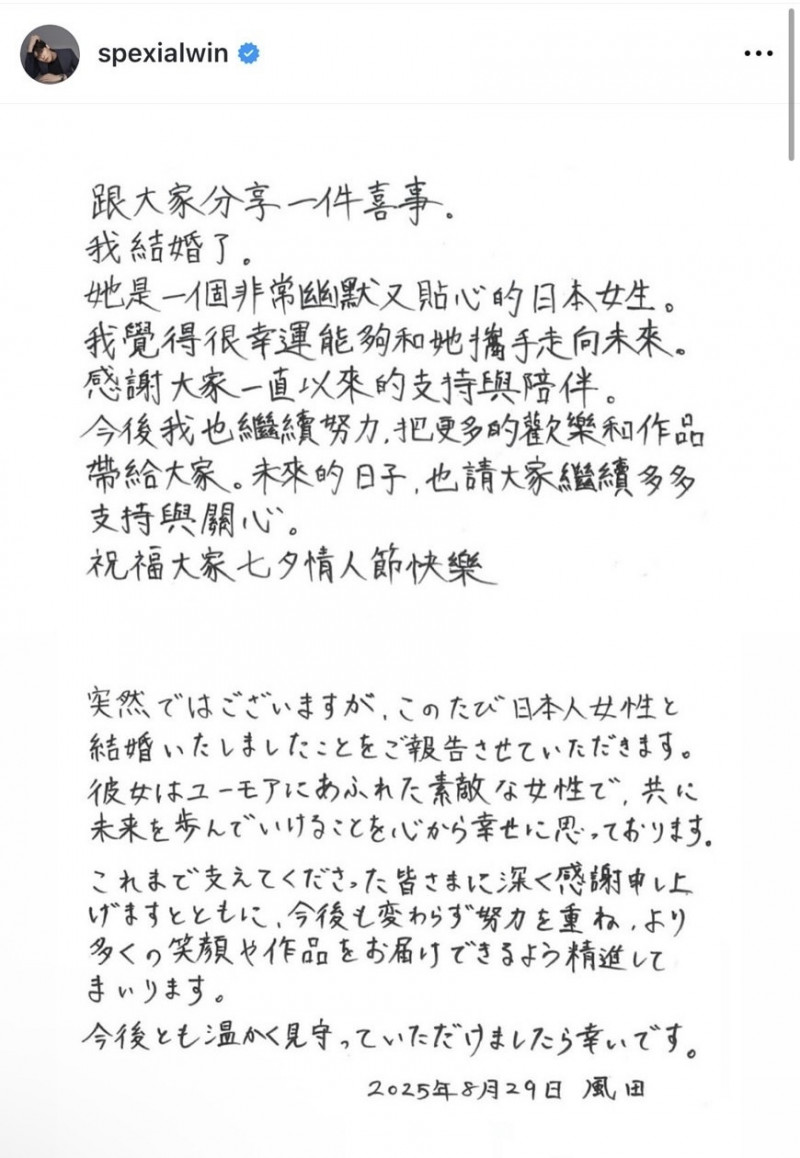 spexialwin
跟大家分享一件喜事。
我結婚了。
她是一個非常幽默又貼心的日本女生。
我覺得很幸運能夠和她攜手走向未來。
感謝大家一直以來的支持與陪伴。
今後我也繼續努力,把更多的歡樂和作品
帶給大家。未來的日子,也請大家繼續多多
支持與關心。
祝福大家七夕情人節快樂
突然ではございますが、このたび日本人女性と
結婚いたしましたことをご報告させていただきます。
彼女はユーモアにあふれた素敵な女性で、共に
未来を歩んでいけることを心から幸せに思っております。
これまで支えてくださった皆さまに深く感謝申し上
げますとともに、今後も変わらず努力を重ね、より
多くの笑顔や作品をお届けできるよう精進して
まいります。
今後とも温かく見守っていただけましたら幸いです。
2025年8月29日 風田